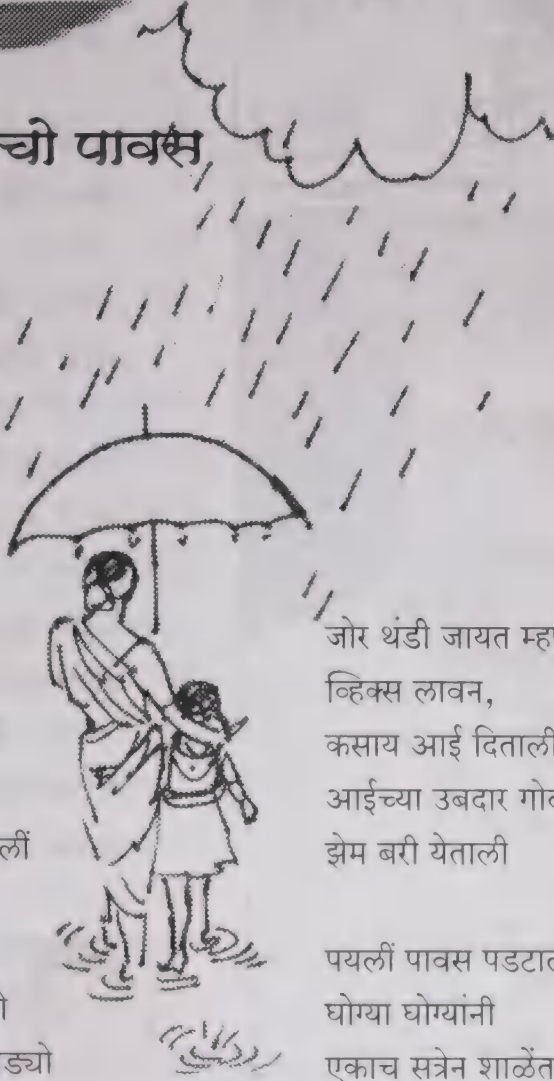 चो पावस
लीं
ो
ड्यो
जोर थंडी जायत म्ह
व्हिक्स लावन,
कसाय आई दिताली
आईच्या उबदार गो
झेम बरी येताली
पयलीं पावस पडटा
घोग्या घोग्यांनी
एकाच सत्रेन शाळेंत